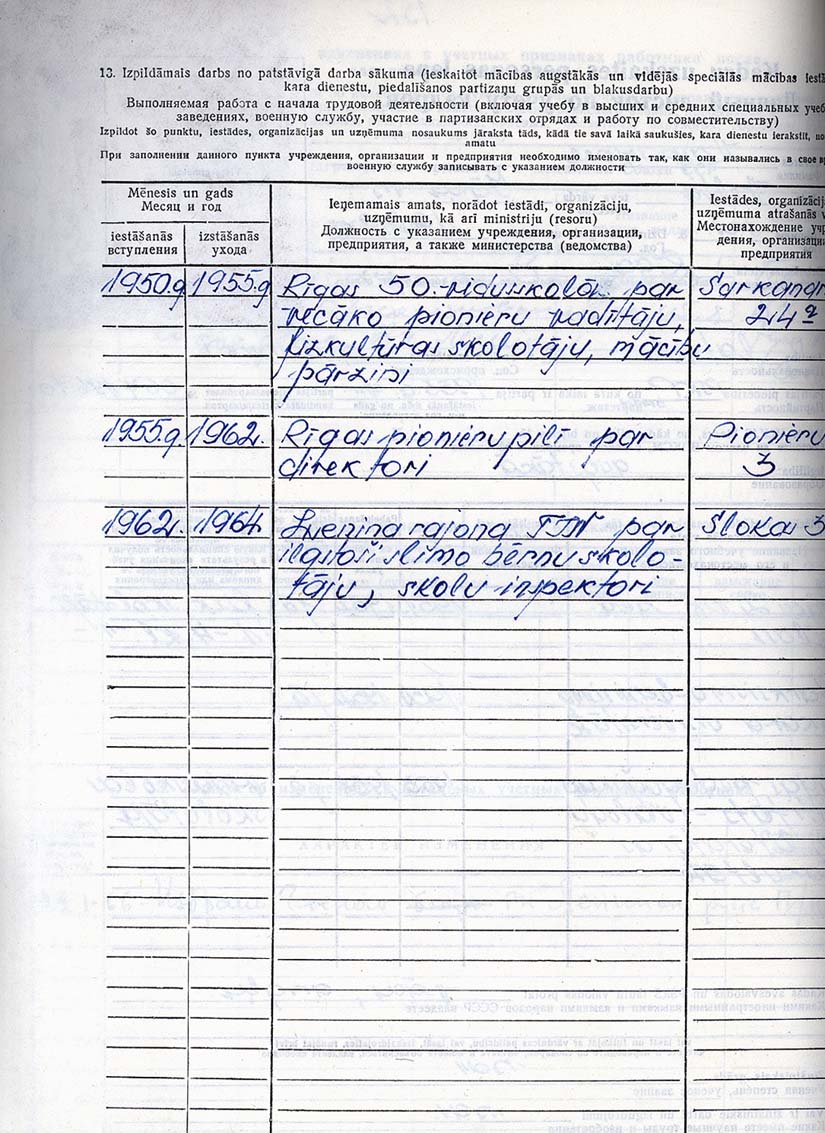 13. Izpildāmais darbs no patstāvīgā darba sākuma (ieskaitot mācības augstākās un vidējās speciālās mācības iestā
kara dienestu, piedalīšanos partizaņu grupās un blakusdarbu)
Выполняемая работа с начала трудовой деятельности (включая учебу в высших и средних специальных учеб
заведениях, военную службу, участие в партизанских отрядах и работу по совместительству)
Izpildot šo punktu, iestādes, organizācijas un uzņēmuma nosaukums jāraksta tāds, kādā tie savā laikā saukušies, kara dienestu ierakstīt, no
amatu
При заполнении данного пункта учреждения, организации и предприятия необходимо именовать так, как они назывались в свое в
военную службу записывать с указанием должности
Mēnesis un gads
Месяц и год
iestāšanās
вступления
izstāšanās
ухода
Ieņemamais amats, norādot iestādi, organizāciju,
uzņēmumu, kā arī ministriju (resoru)
Должность с указанием учреждения, организации,
предприятия, а также министерства (ведомства)
Iestādes, organizācij
uzņēmuma atrašanās v
Местонахождение учр
дения, организаци
предприятия
1950.g 1955.g Rīgas 50.-vidusskolā par Sarkanar
vecāko pionieru vadītāju, 24a
fizkultūras skolotāju, mācību
pārzini
1955.g. 1962. Rīgas pionieru pilī par Pionieru
direktori 3
1962. 1964. Ļeņina rajona TIN par Slokas 3
ilgstoši slimo bērnu skolo-
tāju, skolu inspektori